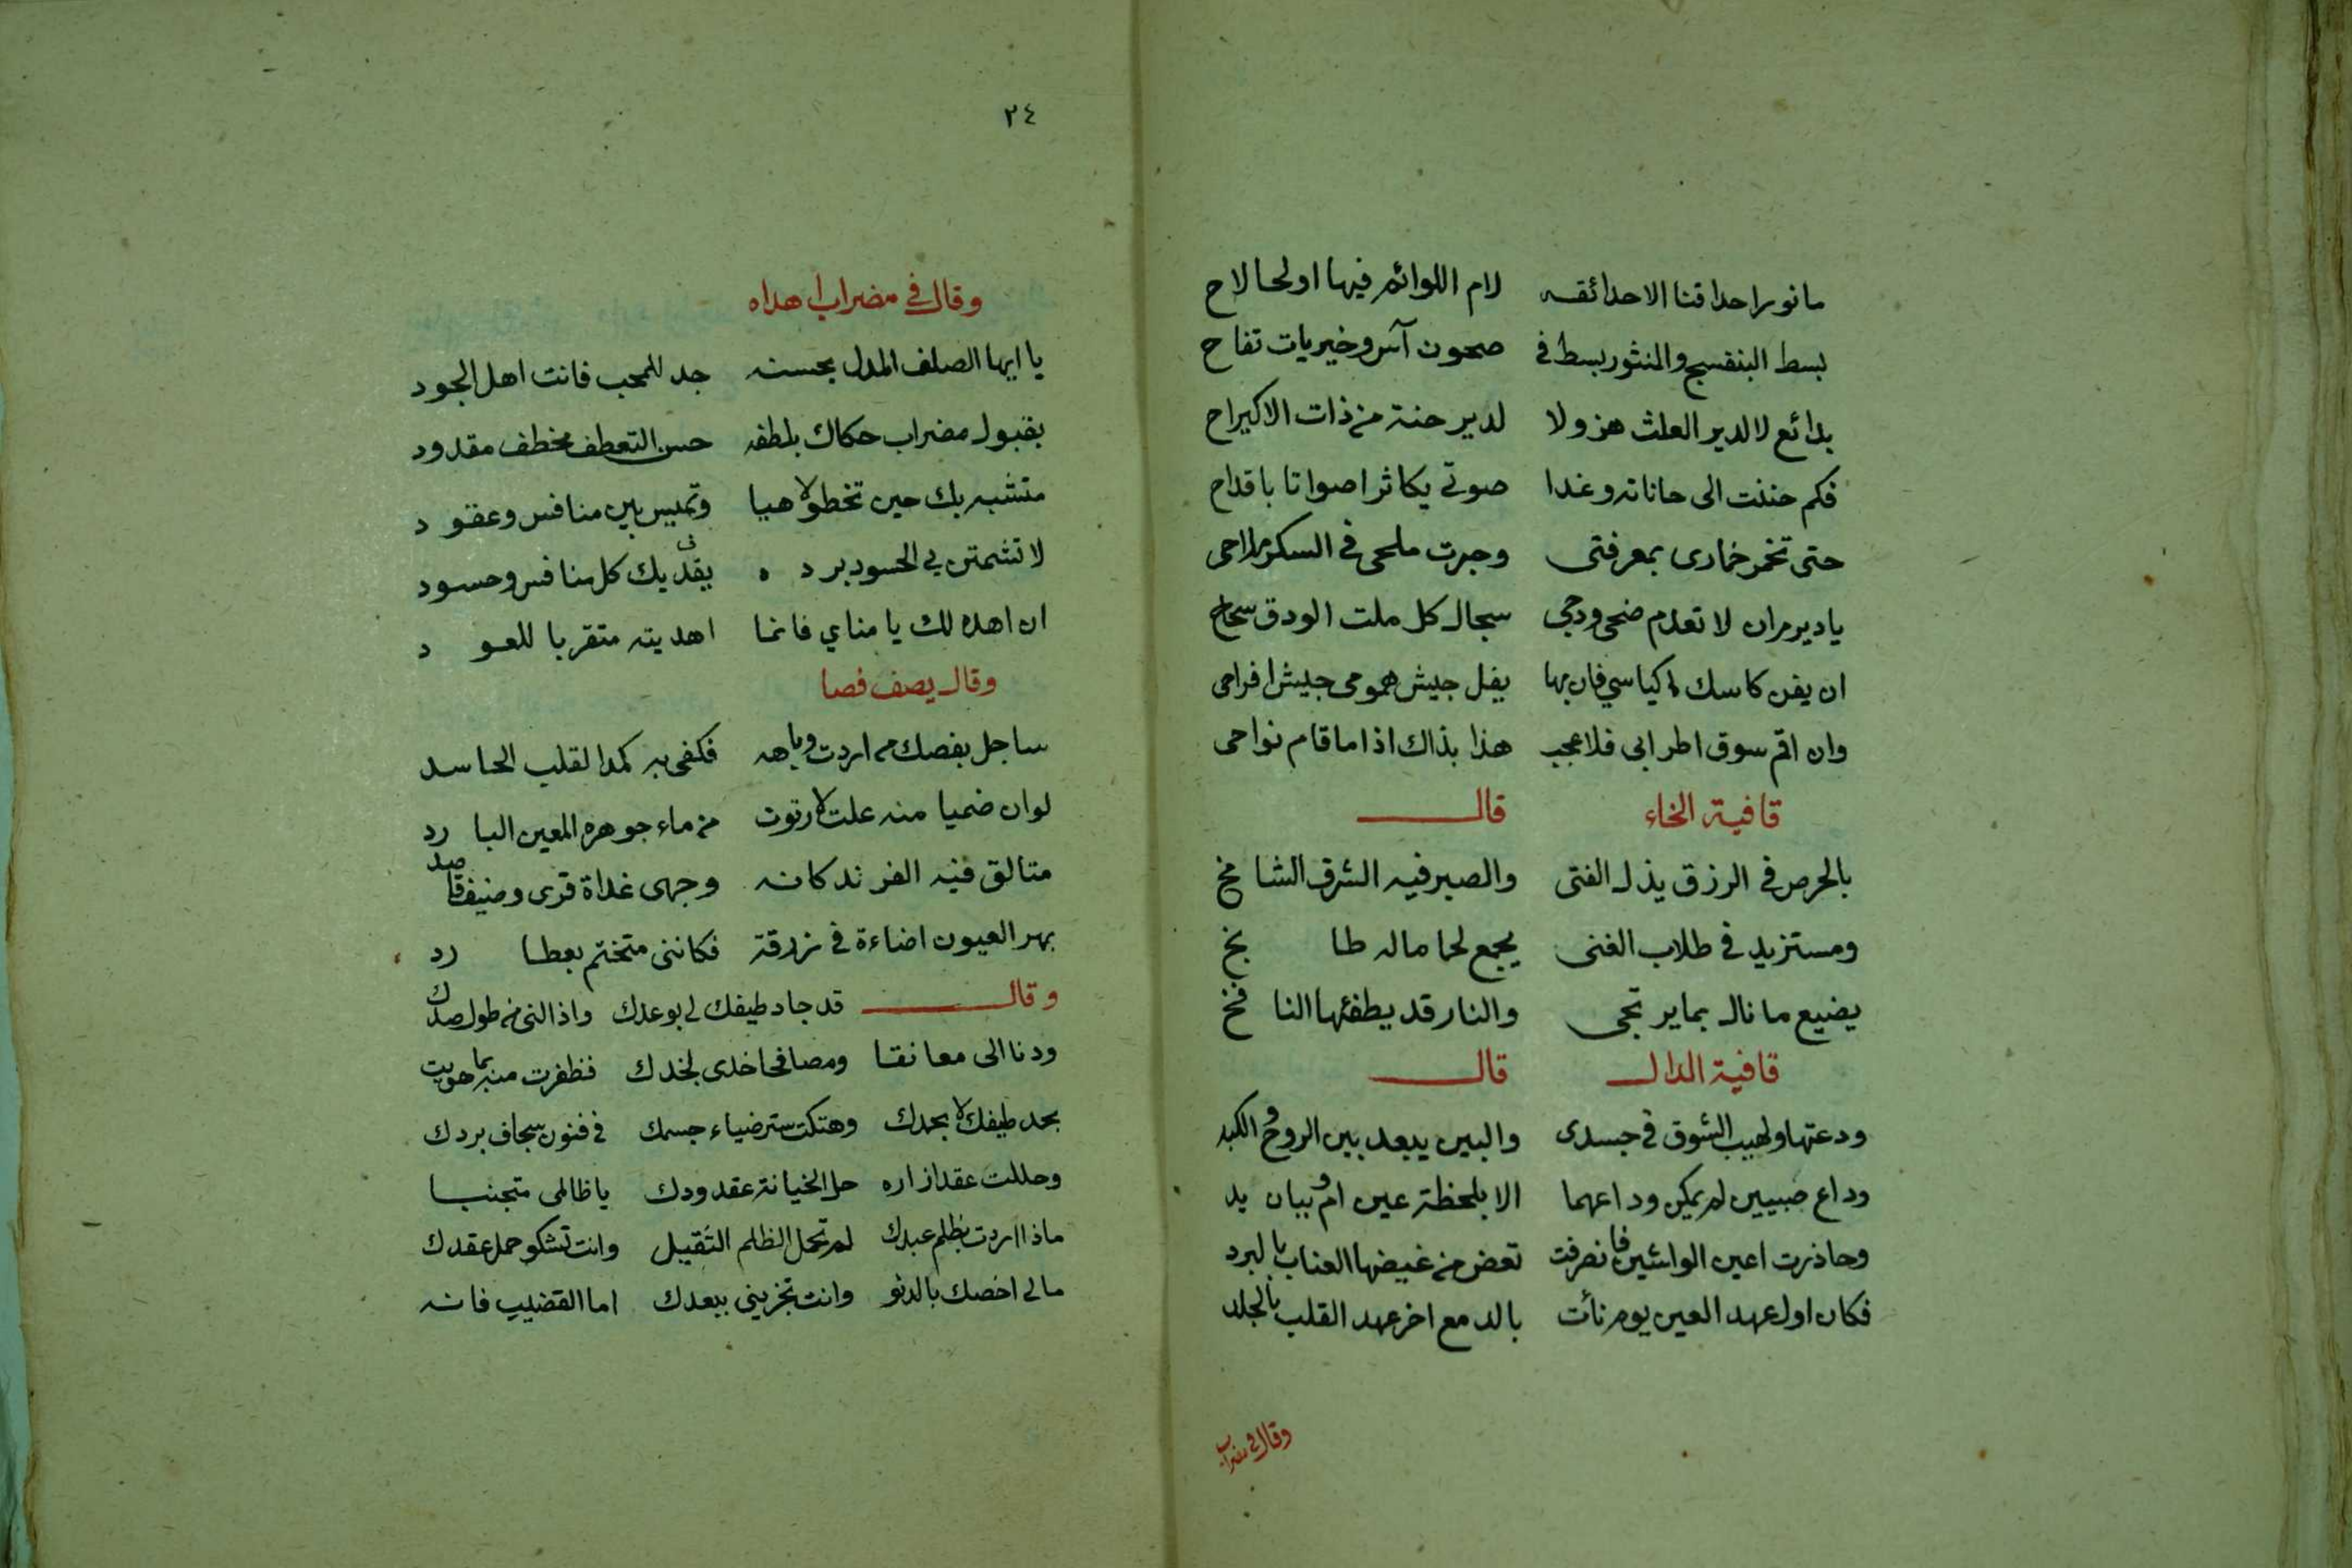 مانور احداقنا الا حدائقه لام اللوائم فيها او لحا لاح
بسط البنفسج والمنثور بسط في صحون آس وخيريات تفاح
بدائع لا لدير العلث هن ولا لدير حنة من ذات الاكيراح
فكم حننت الى حاناته وغدا صوتي يكاثر اصواتا باقداح
حتى تخمر خمارى بمعرفتى وجرت ملحى في السكر ملاحى
يا دير مران لا تعدم ضحى ودجى سجال كل ملت الودق سحاح
ان يفن كاسك اكياسي فان بها يفل جيش همومى جيش افراحى
وان اقم سوق اطرابى فلا عجب هذا بذاك اذا ما قام نواحى
قافية الخاء قال
بالحرص في الرزق يذل الفتى والصبر فيه الشرف الشامخ
ومستزيد في طلاب الغنى يجمع لحما ماله طابخ
يضيع ما نال بما يرتجى والنار قد يطفئها النافخ
قافية الدال قال
ودعتها ولهيب الشوق في جسدى والبين يبعد بين الروح والكبد
وداع صبيين لم يمكن وداعهما الا بلحظة عين او بنان يد
وحاذرت اعين الواشين فانصرفت تعض من غيضها العناب بالبرد
فكان اول عهد العين يوم نأت بالدمع اخر عهد القلب بالجلد
وقال في مضراب
٢٤
وقال في مضراب اهداه
يا ايها الصلف المدل بحسنه جد للمحب فانت اهل الجود
بقبول مضراب حكاك بلطفه حسن التعطف مخطف مقدود
متشبه بك حين تخطو لاهيا وتميس بين منافس وعقود
لا تشمتن بي الحسود برده يفديك كل منافس وحسود
ان اهده لك يا مناي فانما اهديته متقربا للعود
وقال يصف فصا
ساجل بفصك من اردت وباهه فكفى به كمدا لقلب الحاسد
لو ان ضميا منه علت لارتوت من ماء جوهره المعين البارد
متالق فيه الفرند كانه وجهى غداة قرى وضيف قاصد
بهر العيون اضاءة في زرقة فكاننى متختم بعطارد
وقال قد جاد طيفك لى بوعدك واذالنى من طول صدك
ودنا الى معانقا ومصافحا خدى لخدك فظفرت منه بما هويت
بحد طيفك لا بحمدك وهتكت ستر ضياء جسمك في فنون سجاف بردك
وحللت عقد ازاره حل الخيانة عقد ودك يا ظالمى متجنبا
ماذا اردت بظلم عبدك لم تحمل الظلم الثقيل وانت تشكو حمل عقدك
مالى اخصك بالدنو وانت تجزينى ببعدك اما القضيب فانه